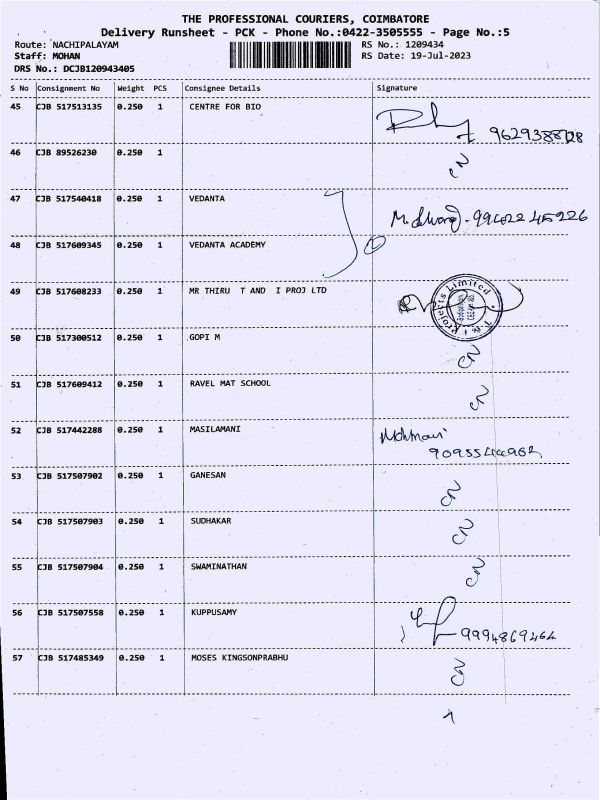 THE PROFESSIONAL COURIERS, COIMBATORE
Delivery Runsheet - PCK - Phone No.:0422-3505555 - Page No.:5
Route: NACHIPALAYAM RS No.: 1209434
Staff: MOHAN RS Date: 19-Jul-2023
DRS No.: DCJB120943405
S No Consignment No Weight PCS Consignee Details Signature
45 CJB 517513135 0.250 1 CENTRE FOR BIO
46 CJB 89526230 0.250 1
47 CJB 517540418 0.250 1 VEDANTA
48 CJB 517609345 0.250 1 VEDANTA ACADEMY
49 CJB 517608233 0.250 1 MR THIRU T AND I PROJ LTD
Projects Limited
50 CJB 517300512 0.250 1 GOPI M
51 CJB 517609412 0.250 1 RAVEL MAT SCHOOL
52 CJB 517442288 0.250 1 MASILAMANI
53 CJB 517507902 0.250 1 GANESAN
54 CJB 517507903 0.250 1 SUDHAKAR
55 CJB 517507904 0.250 1 SWAMINATHAN
56 CJB 517507558 0.250 1 KUPPUSAMY
9994869464
57 CJB 517485349 0.250 1 MOSES KINGSONPRABHU